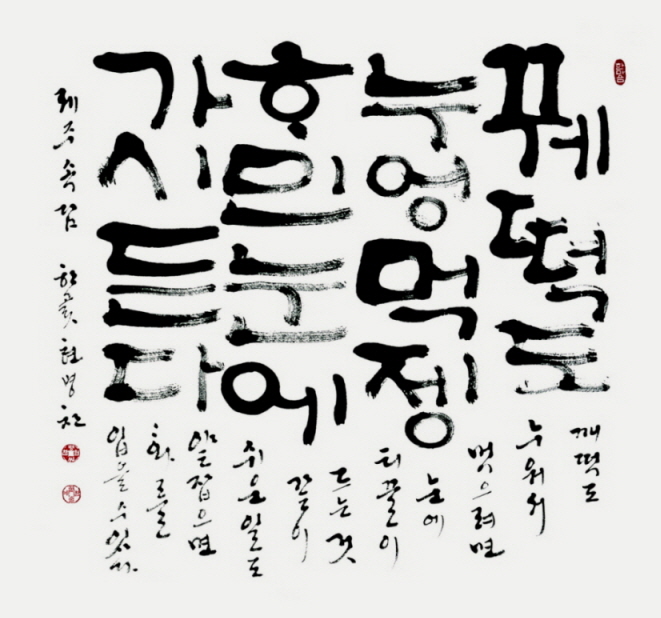 꿰떡도
누엉먹젱
ᄒᆞ민눈에
가시든다
깨떡도
누워서
먹으려면
눈에
티끌이
드는 것
같이
쉬운 일도
얕잡으면
화를
입을 수 있다
제주속담 한곬 현병찬